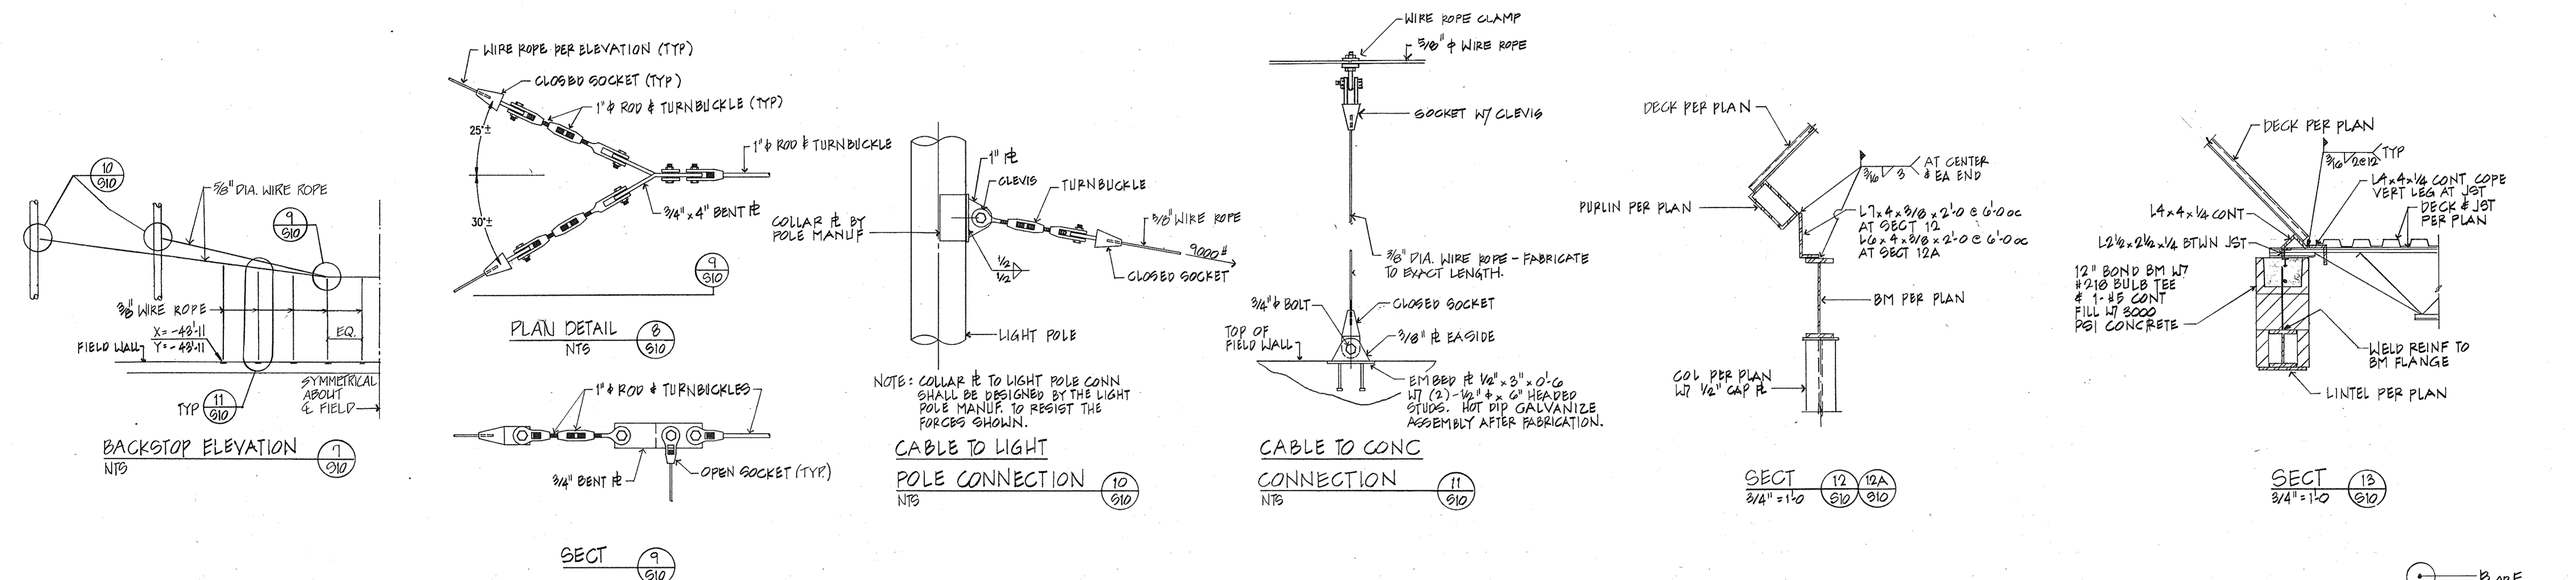 10
S10
5/8" DIA. WIRE ROPE
9
S10
3/8" WIRE ROPE
X = -43'-11
Y = -43'-11
FIELD WALL
EQ.
SYMMETRICAL
ABOUT
℄ FIELD
TYP
11
S10
BACKSTOP ELEVATION
NTS
7
S10
WIRE ROPE PER ELEVATION (TYP)
CLOSED SOCKET (TYP)
1" ϕ ROD & TURNBUCKLE (TYP)
25°±
1" ϕ ROD & TURNBUCKLE
3/4" x 4" BENT ℙL
30°±
9
S10
PLAN DETAIL
NTS
8
S10
1" ϕ ROD & TURNBUCKLES
3/4" BENT ℙL
OPEN SOCKET (TYP.)
SECT
9
S10
1" ℙL
CLEVIS
TURNBUCKLE
COLLAR ℙL BY
POLE MANUF
5/8" WIRE ROPE
9000#
CLOSED SOCKET
1/2
1/2
LIGHT POLE
NOTE: COLLAR ℙL TO LIGHT POLE CONN
SHALL BE DESIGNED BY THE LIGHT
POLE MANUF. TO RESIST THE
FORCES SHOWN.
CABLE TO LIGHT
POLE CONNECTION
NTS
10
S10
WIRE ROPE CLAMP
5/8" ϕ WIRE ROPE
SOCKET W/ CLEVIS
3/8" DIA. WIRE ROPE - FABRICATE
TO EXACT LENGTH.
3/4" ϕ BOLT
CLOSED SOCKET
TOP OF
FIELD WALL
3/8" ℙL EA SIDE
EMBED ℙL 1/2" x 3" x 0'-6
W/ (2)-1/2" ϕ x 6" HEADED
STUDS. HOT DIP GALVANIZE
ASSEMBLY AFTER FABRICATION.
CABLE TO CONC
CONNECTION
NTS
11
S10
DECK PER PLAN
AT CENTER
& EA END
3/16
3
PURLIN PER PLAN
L7 x 4 x 3/8 x 2'-0 @ 6'-0 oc
AT SECT 12
L6 x 4 x 3/8 x 2'-0 @ 6'-0 oc
AT SECT 12A
BM PER PLAN
COL PER PLAN
W/ 1/2" CAP ℙL
SECT
3/4" = 1'-0
12
S10
12A
S10
DECK PER PLAN
TYP
3/16
2@12
L4 x 4 x 1/4 CONT COPE
VERT LEG AT JST
DECK & JST
PER PLAN
L4 x 4 x 1/4 CONT
L2 1/2 x 2 1/2 x 1/4 BTWN JST
12" BOND BM W/
#218 BULB TEE
& 1-#5 CONT
FILL W/ 3000
PSI CONCRETE
WELD REINF TO
BM FLANGE
LINTEL PER PLAN
SECT
3/4" = 1'-0
13
S10